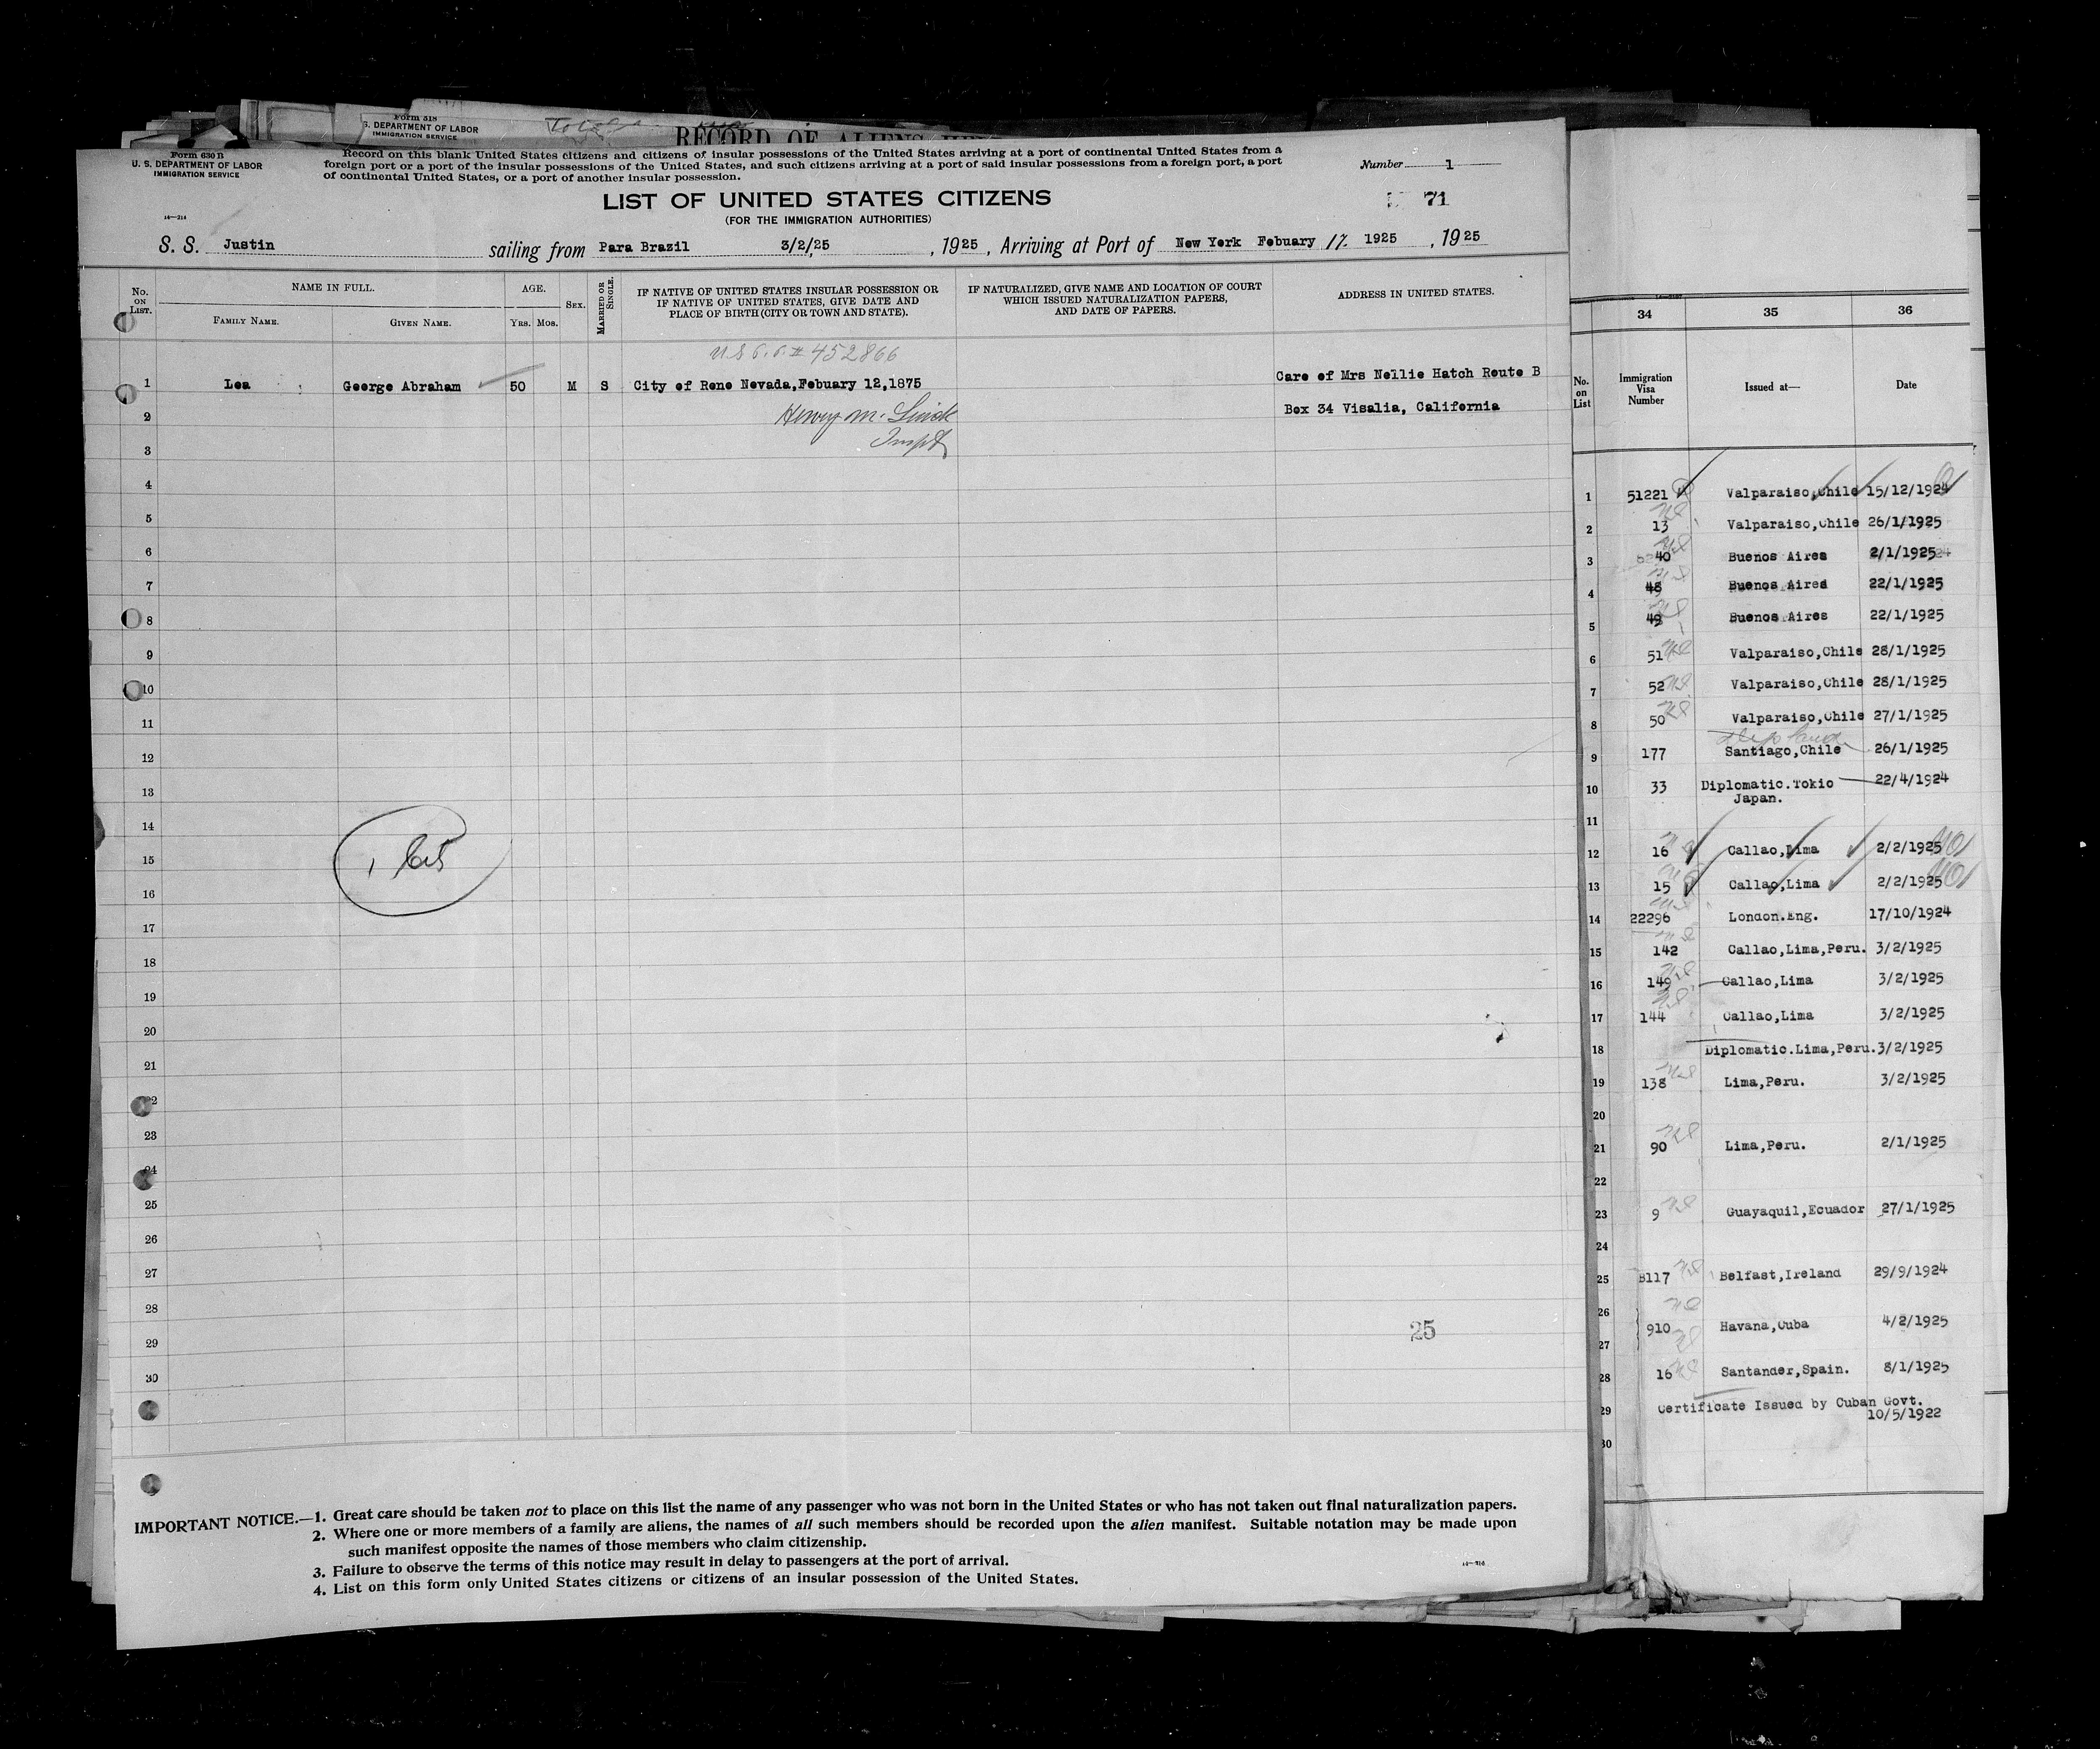 Form 518
S. DEPARTMENT OF LABOR
IMMIGRATION SERVICE
RECORD OF ALIENS
Form 630 B
U. S. DEPARTMENT OF LABOR
IMMIGRATION SERVICE
14—214
Record on this blank United States citizens and citizens of insular possessions of the United States arriving at a port of continental United States from a
foreign port or a port of the insular possessions of the United States, and such citizens arriving at a port of said insular possessions from a foreign port, a port
of continental United States, or a port of another insular possession.
Number 1
LIST OF UNITED STATES CITIZENS
(FOR THE IMMIGRATION AUTHORITIES)
71
S. S. Justin sailing from Para Brazil 3/2/25 , 1925 , Arriving at Port of New York Febuary 17. 1925 , 1925
No. ON LIST.
NAME IN FULL.
FAMILY NAME.
GIVEN NAME.
AGE.
YRS. MOS.
SEX.
MARRIED OR SINGLE.
IF NATIVE OF UNITED STATES INSULAR POSSESSION OR
IF NATIVE OF UNITED STATES, GIVE DATE AND
PLACE OF BIRTH (CITY OR TOWN AND STATE).
IF NATURALIZED, GIVE NAME AND LOCATION OF COURT
WHICH ISSUED NATURALIZATION PAPERS,
AND DATE OF PAPERS.
ADDRESS IN UNITED STATES.
U S P. P. # 452866
1 Lea George Abraham 50 M S City of Reno Nevada,Febuary 12,1875 Care of Mrs Nellie Hatch Route B
2 Henry M. Box 34 Visalia, California
3 Inspt
4
5
6
7
8
9
10
11
12
13
14
15
16
17
18
19
20
21
22
23
24
25
26
27
28
29
30
25
IMPORTANT NOTICE.—1. Great care should be taken not to place on this list the name of any passenger who was not born in the United States or who has not taken out final naturalization papers.
2. Where one or more members of a family are aliens, the names of all such members should be recorded upon the alien manifest. Suitable notation may be made upon
such manifest opposite the names of those members who claim citizenship.
3. Failure to observe the terms of this notice may result in delay to passengers at the port of arrival.
4. List on this form only United States citizens or citizens of an insular possession of the United States.
14—214
34 35 36
No. on List
Immigration Visa Number
Issued at—
Date
1 51221 Valparaiso,Chile 15/12/1924
2 13 Valparaiso,Chile 26/1/1925
3 40 Buenos Aires 2/1/1925
4 48 Buenos Aires 22/1/1925
5 49 Buenos Aires 22/1/1925
6 51 Valparaiso,Chile 28/1/1925
7 52 Valparaiso,Chile 28/1/1925
8 50 Valparaiso,Chile 27/1/1925
9 177 Santiago,Chile 26/1/1925
10 33 Diplomatic.Tokio 22/4/1924
Japan.
11
12 16 Callao,Lima 2/2/1925
13 15 Callao,Lima 2/2/1925
14 22296 London.Eng. 17/10/1924
15 142 Callao,Lima,Peru. 3/2/1925
16 149 Callao,Lima 3/2/1925
17 144 Callao,Lima 3/2/1925
18 Diplomatic.Lima,Peru. 3/2/1925
19 138 Lima,Peru. 3/2/1925
20
21 90 Lima,Peru. 2/1/1925
22
23 9 Guayaquil,Ecuador 27/1/1925
24
25 B117 Belfast,Ireland 29/9/1924
26
910 Havana,Cuba 4/2/1925
27
28 16 Santander,Spain. 8/1/1925
29 Certificate Issued by Cuban Govt.
10/5/1922
30